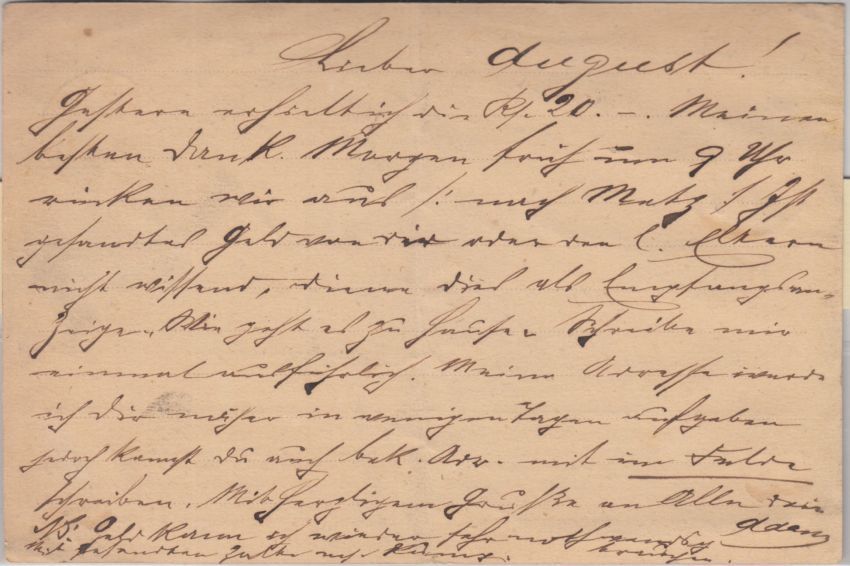 Lieber August!
Gestern erhielt ich die Rp. 20. –. Meinen
besten Dank. Morgen früh um 9 Uhr
rücken wir aus /: nach Metz :/ Ist
gesandtes Geld von dir oder den l. Eltern
nicht wissend, diene dies als Empfangsan-
zeige. Wie geht es zu Hause. Schreibe mir
einmal ausführlich. Meine Adresse werde
ich dir näher in wenigen Tagen aufgeben
jedoch kannst du auch bek. Adr. mit im Felde
schreiben. Mit herzligem Gruße an Alle dein
Adam
NB. Geld kann ich wieder sehr nothwendig
brauchen.
Mit gesandten